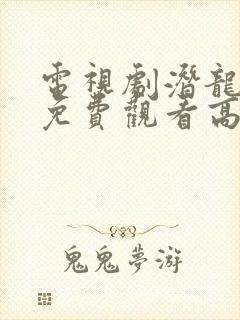 電視劇潛龍
免費觀看高
鬼鬼夢游